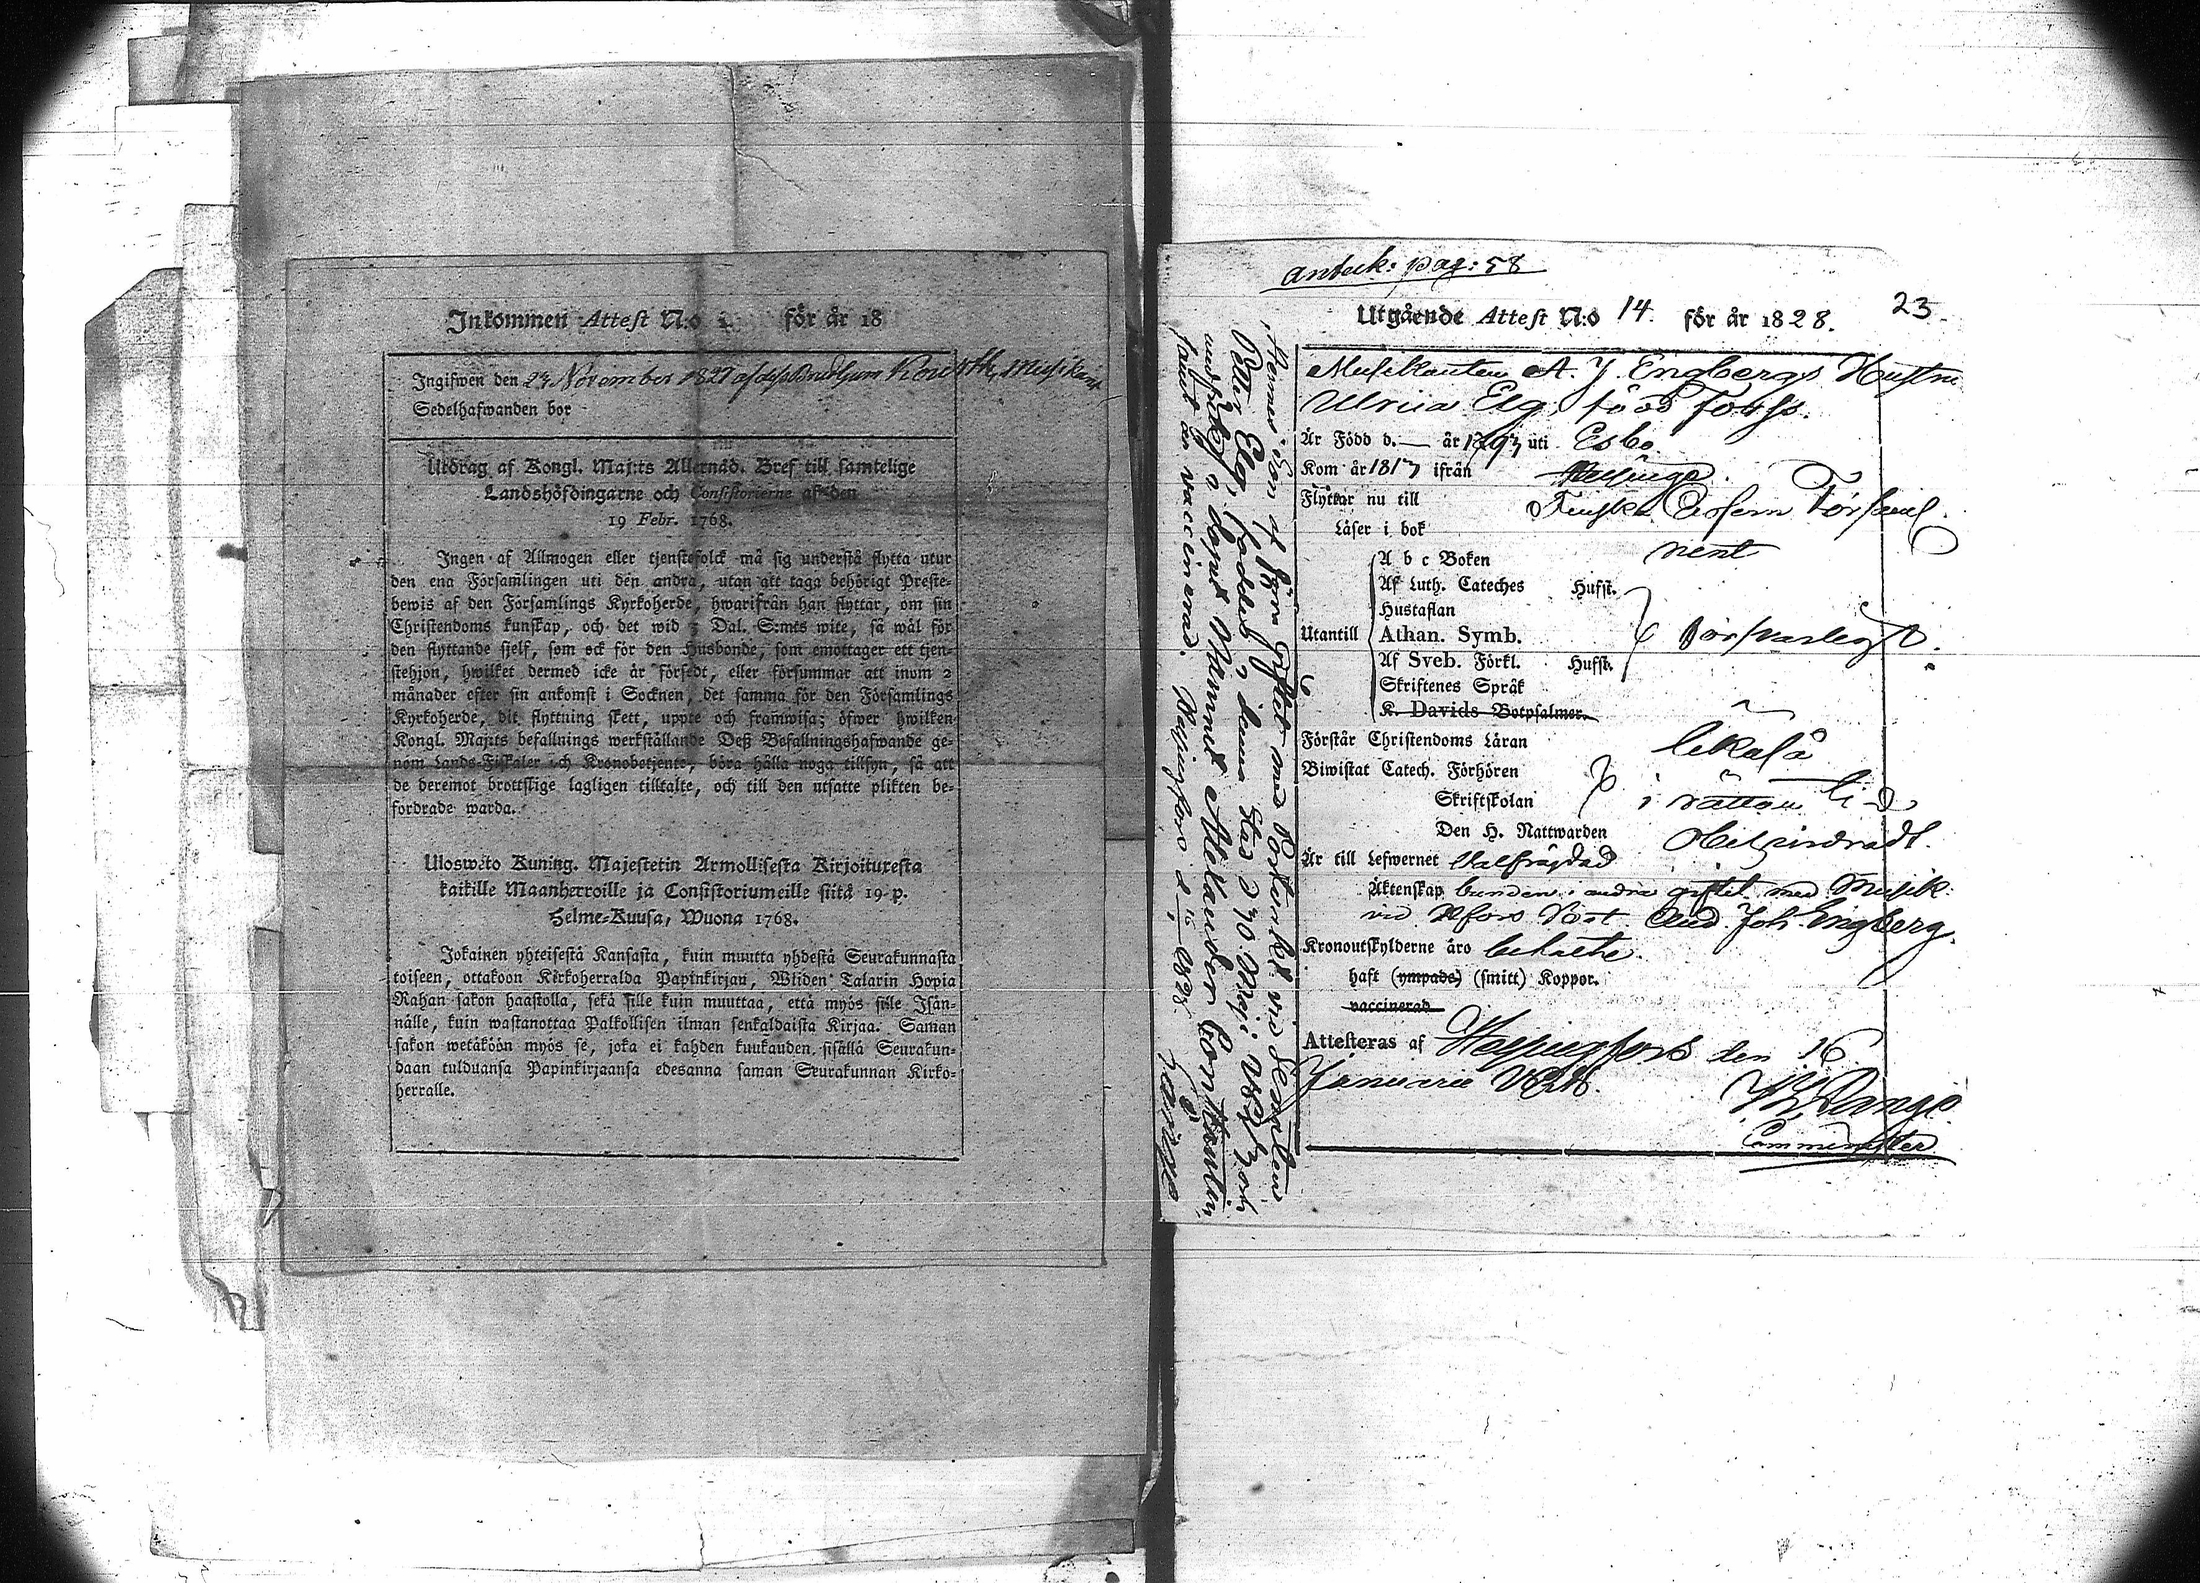 Inkommen Attest N:o för år 18
Ingifwen den 24 November 1827 af dess Brudgum Musikant
Sedelhafwanden bor
Utdrag af Kongl. Maj:ts Allernåd. Bref till samtelige
Landshöfdingarne och Consistorierne af den
19 Febr. 1768.
Ingen af Allmogen eller tjenstefolck må sig understå flytta utur
den ena Församlingen uti den andra, utan att taga behörigt Preste-
bewis af den Församlings Kyrkoherde, hwarifrån han flyttar, om sin
Christendoms kunskap, och det wid 3 Dal. S:mts wite, så wäl för
den flyttande sjelf, som ock för den Husbonde, som emottager ett tjen-
stehjon, hwilket dermed icke är försedt, eller försummar att inom 2
månader efter sin ankomst i Socknen, det samma för den Församlings
Kyrkoherde, dit flyttning skett, uppte och framwisa; öfwer hwilken
Kongl. Maj:ts befallnings werkställande Deß Befallningshafwande ge-
nom Lands-Fiskaler och Kronobetjente, böra hålla noga tillsyn, så att
de deremot brottslige lagligen tilltalte, och till den utsatte plikten be-
fordrade warda.
Uloswéto Kuning. Majestetin Armollisesta Kirjoituxesta
kaikille Maanherroille ja Consistoriumeille siitä 19 p.
Helme-Kuusa, Wuona 1768.
Jokainen yhteisestä Kansasta, kuin muutta yhdestä Seurakunnasta
toiseen, ottakoon Kirkoherralda Papinkirjan, Wiiden Talarin Hopia
Rahan sakon haastolla, sekä sille kuin muuttaa, että myös sille Isän-
nälle, kuin wastanottaa Palkollisen ilman senkaldaista Kirjaa. Saman
sakon wetäköön myös se, joka ei kahden kuukauden sisällä Seurakun-
daan tulduansa Papinkirjaansa edesanna saman Seurakunnan Kirko-
herralle.
anteck: pag: 58
23
Utgående Attest N:o 14 för år 1828.
Musikanten A. J. Engbergs Hustru
Ulrica Elg, född Forss.
Är Född d. — år 1793 uti Esbo
Kom år 1817 ifrån Helsinge.
Flyttar nu till Finska Församl.
Läser i bok rent
A b c Boken
Af Luth. Cateches Husst.
Hustaflan
Utantill Athan. Symb. försvarligt.
Af Sveb. Förkl. Husst.
Skriftenes Språk
K. Davids Botpsalmer.
Förstår Christendoms Läran likaså
Biwistat Catech. Förhören
Skriftskolan i rättan tid
Den H. Nattwarden obehindradt.
Är till Lefwernet Välfrägdad
Äktenskap bunden i andra giftet med Musik:
vid And. Joh. Engberg.
Kronoutskylderne äro betalte.
haft (ympade) (smitt) Koppor.
vaccinerad
Attesteras af Helsingfors den 16
Januarii 1828.
Comminister
Hennes Son af förra giftet med
Petter Elg, född i denna Stad d 30 Maj 1827 och
undfick i dopet Namnet Alexander Constantin
samt är vaccinerad. Helsingfors d. 1828.